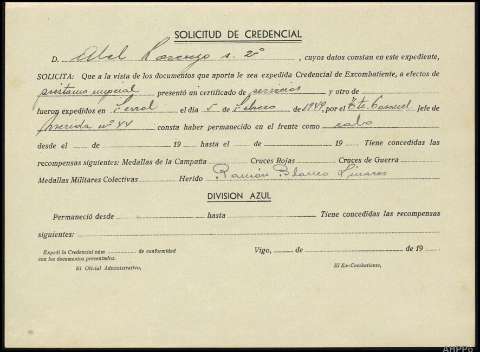 SOLICITUD DE CREDENCIAL
D. Abel Lorenzo , cuyos datos constan en este expediente,
SOLICITA: Que a la vista de los documentos que aporta le sea expedida Credencial de Excombatiente, a efectos de
préstamo especial presentó un certificado de servicios y otro de
fueron expedidos en Ferrol el día 5 de Febrero de 1949, por el Tte. Coronel Jefe de
nº 44 consta haber permanecido en el frente como cabo
desde el de de 19 hasta el de de 19 Tiene concedidas las
recompensas siguientes: Medallas de la Campaña Cruces Rojas Cruces de Guerra
Medallas Militares Colectivas Herido Ramón Blanco Linares
DIVISION AZUL
Permaneció desde hasta Tiene concedidas las recompensas
siguientes:
Expedí la Credencial núm de conformidad
con los documentos presentados.
Vigo, de de 19
El Oficial Administrativo,
El Ex-Combatiente,
AHPPo